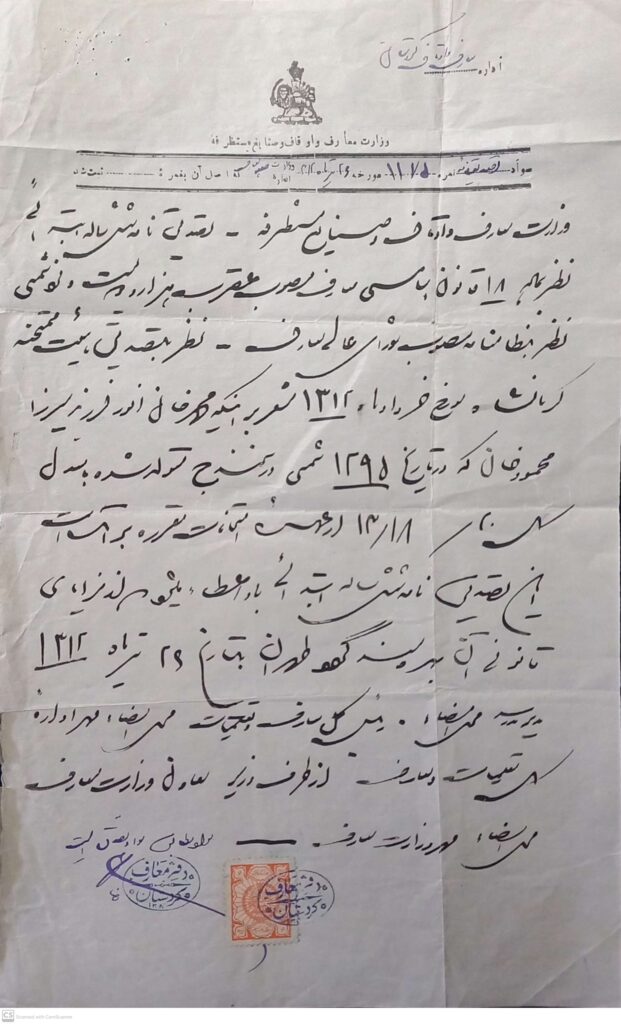 اداره معارف و اوقاف کردستان
وزارت معارف و اوقاف و صنایع مستظرفه
سواد تصدیقنامه نمره ۱۱۷۵ مورخه ۲۶ تیر ماه ۱۳۱۲ که اصل آن بنمره ثبت شد
وزارت معارف و اوقاف و صنایع مستظرفه - تصدیق نامه شش ساله ابتدائی
نظر بماده ۱۸ قانون اساسی معارف مصوب عقرب هزار و دویست و نود شمسی
نظر بنظامنامه مصوب شورای عالی معارف - نظر بتصدیق هیئت ممتحنه
کرمانشاه مورخ خرداد ماه ۱۳۱۲ مشعر بر اینکه محمد خان انور فرزند میرزا
محمود خان که در تاریخ ۱۲۹۵ شمسی در سنندج متولد شده با معدل
۱۳/۱۸ از عهده امتحانات مقرره بر آمده است
این تصدیق نامه شش ساله ابتدائی باو اعطاء میشود از مزایای
قانونی آن بهره مند گردد طهران بتاریخ ۲۶ تیر ماه ۱۳۱۲
مدیر مدرسه محل امضاء - رئیس کل معارف و تعلیمات محل امضاء مهر اداره
کل تعلیمات و معارف از طرف وزیر معاون وزارت معارف
محل امضاء مهر وزارت معارف
سواد مطابق اصل است
دفتر معارف
کردستان
دفتر معارف
کردستان
CS Scanned with CamScanner